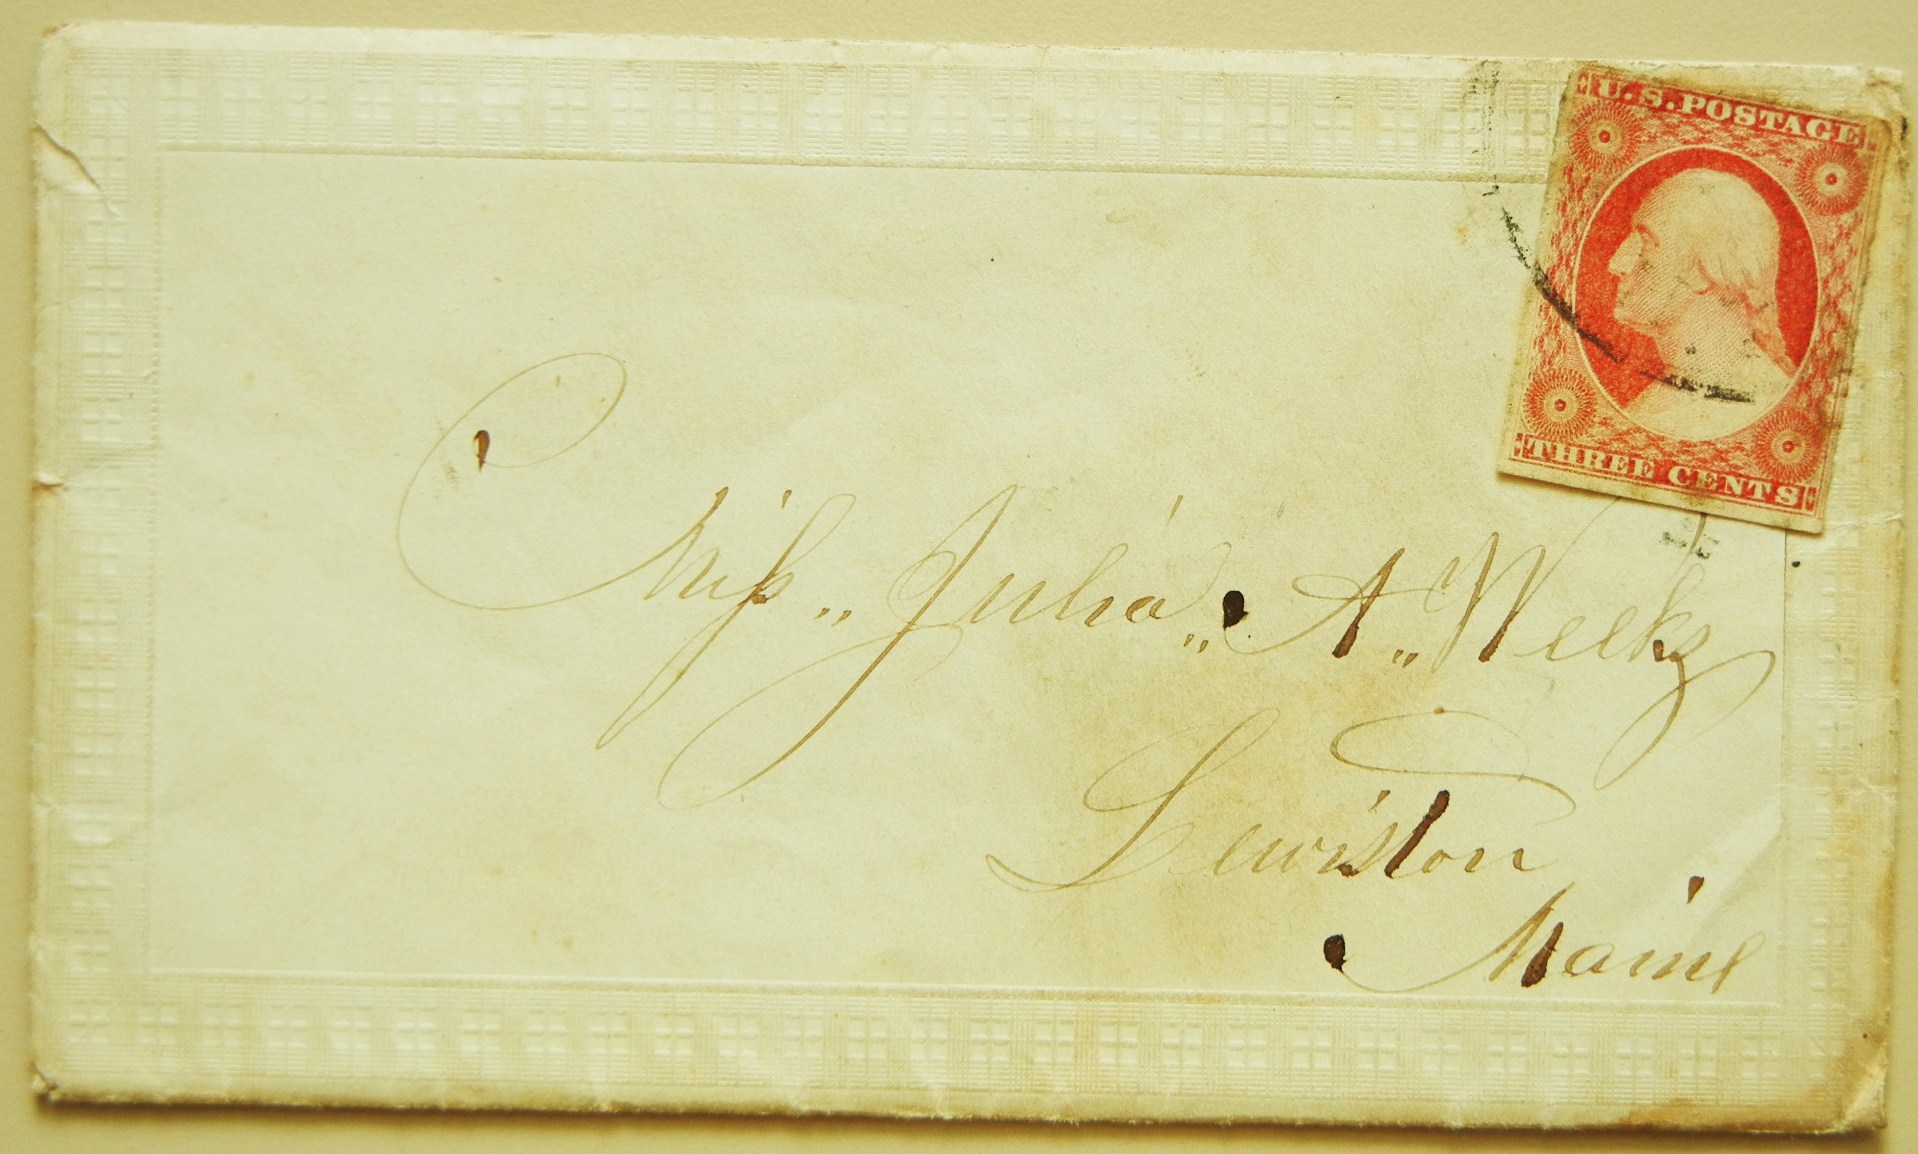 U.S. POSTAGE
THREE CENTS
Miss „ Julia „ A „ Weeks
Lewiston
Maine